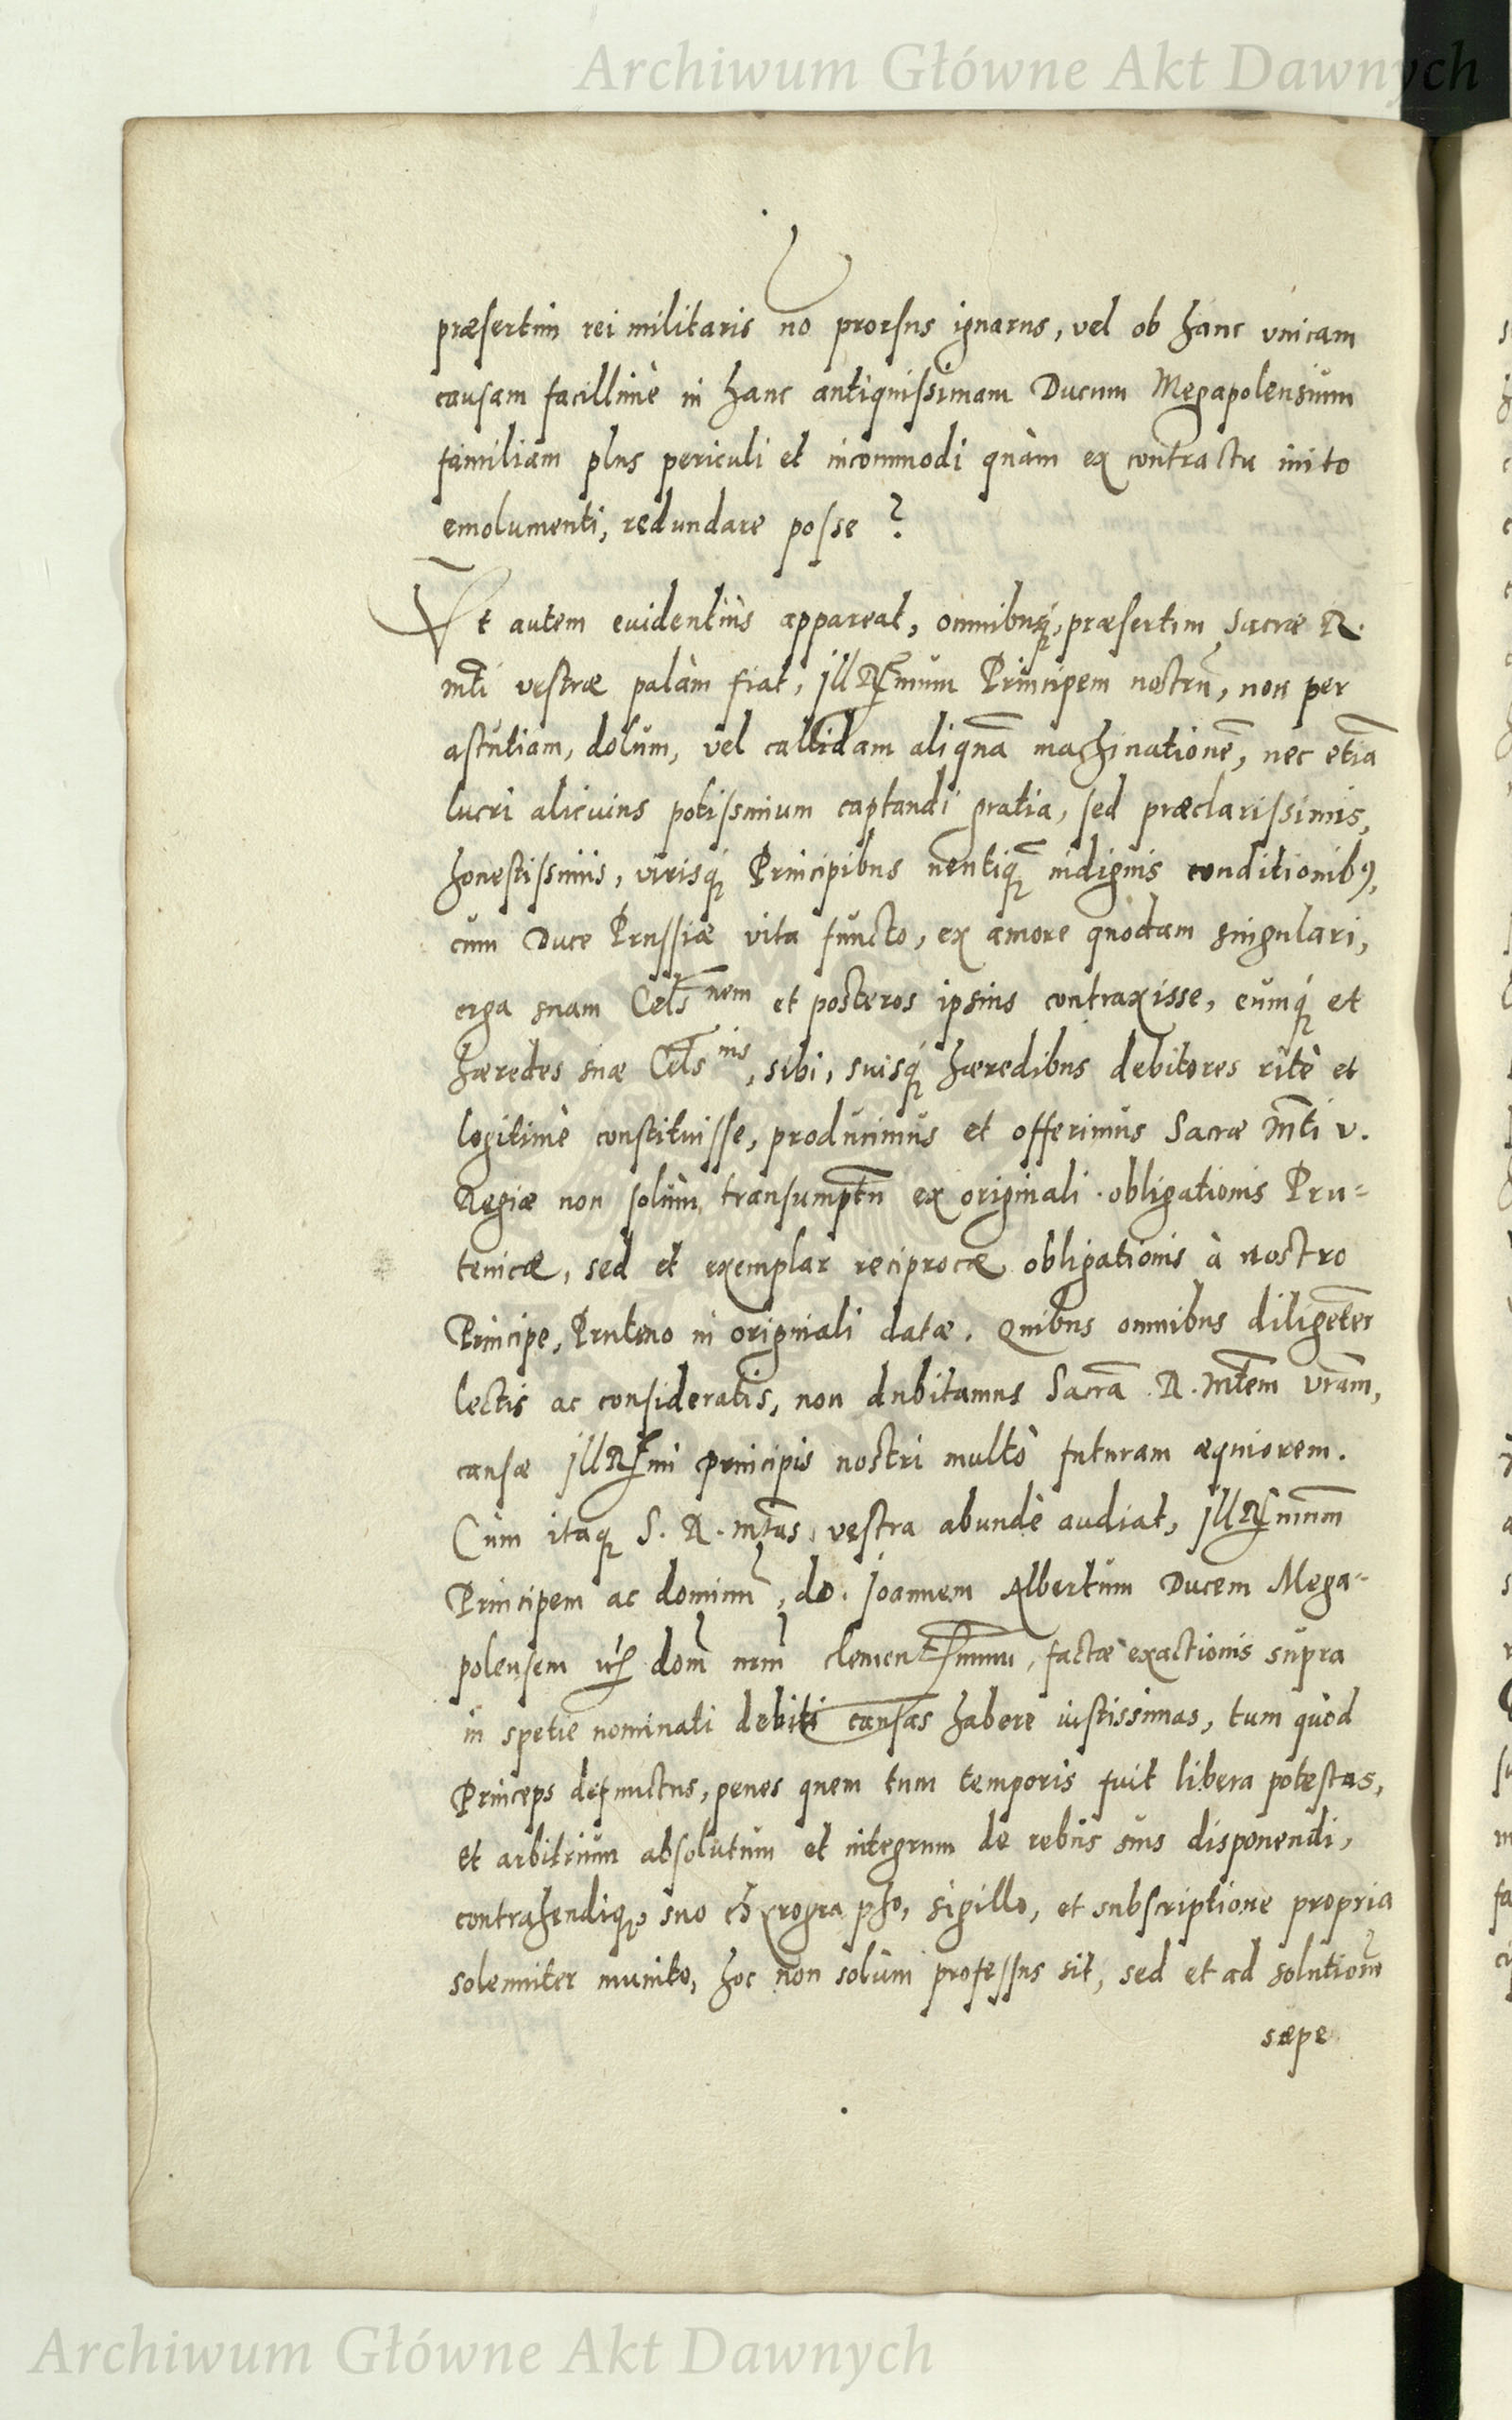 Archiwum Główne Akt Dawnych
præsertim rei militaris no prorsus ignarus, vel ob hanc vnicam
causam facillimè in hanc antiquissimam Ducum Megapolensium
familiam plus periculi et incommodi quàm ex contractu inito
emolumenti, redundare posse?
Vt autem euidentius appareat, omnibusq́, præsertim Sacræ R.
mti vestræ palàm fiat, Ill mum Principem nostrū, non per
astutiam, dolum, vel callidam aliquā machinationē, nec etiā
lucri alicuius potissimum captandi gratia, sed præclarissimis,
honestissimis, virisq́ Principibus neutiq̃ indignis conditionibꝰ,
cum Duce Prussiæ vita functo, ex amore quodam singulari,
erga suam Cels nem et posteros ipsius contraxisse, eumq́ et
hæredes suæ Cels nis, sibi, suisq́ hæredibus debitores ritè et
legitimè constituisse, producimus et offerimus Sacræ Mti v.
Regiæ non solùm transumptū ex originali obligationis Pru-
tenicæ, sed et exemplar reciprocæ obligationis à nostro
Principe, Pruteno in originali datæ. Quibus omnibus diligēter
lectis ac consideratis, non dubitamus Sacrā R. Mtem vrām,
causæ Ill mi principis nostri multò futuram æquiorem.
Cùm itaq S. R. mtas vestra abundè audiat, Ill mum
Principem ac dominū, do. Joannem Albertum Ducem Mega-
polensem dom̄ nrm̄ clementissimum, factæ exactionis supra
in spetie nominati debiti causas habere iustissimas, tum quòd
Princeps defunctus, penes quem tum temporis fuit libera potestas,
et arbitrium absolutum et integrum de rebus suis disponendi,
contrahendiq́, suo chyrographo, sigillo, et subscriptione propria
solenniter munito, hoc non solùm professus sit, sed et ad solutionē
sæpe
Archiwum Główne Akt Dawnych